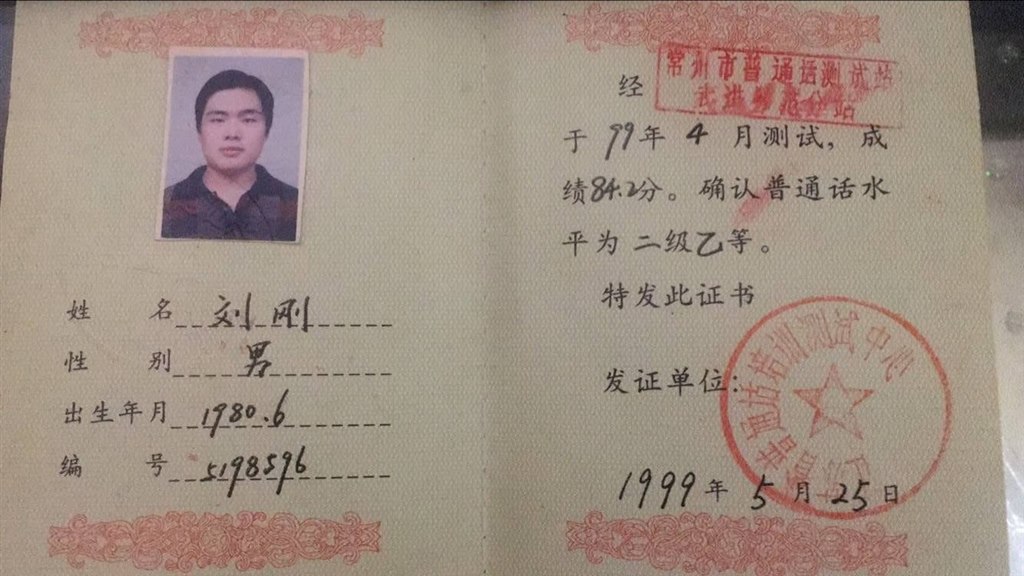 姓 名 刘刚
性 别 男
出生年月 1980.6
编 号 5198596
常州市普通话测试站
武进分站
经
于 99年 4 月测试，成
绩84.2分。确认普通话水
平为 二级乙等。
特发此证书
发证单位：
普通话培训测试中心
1999 年 5 月 25 日